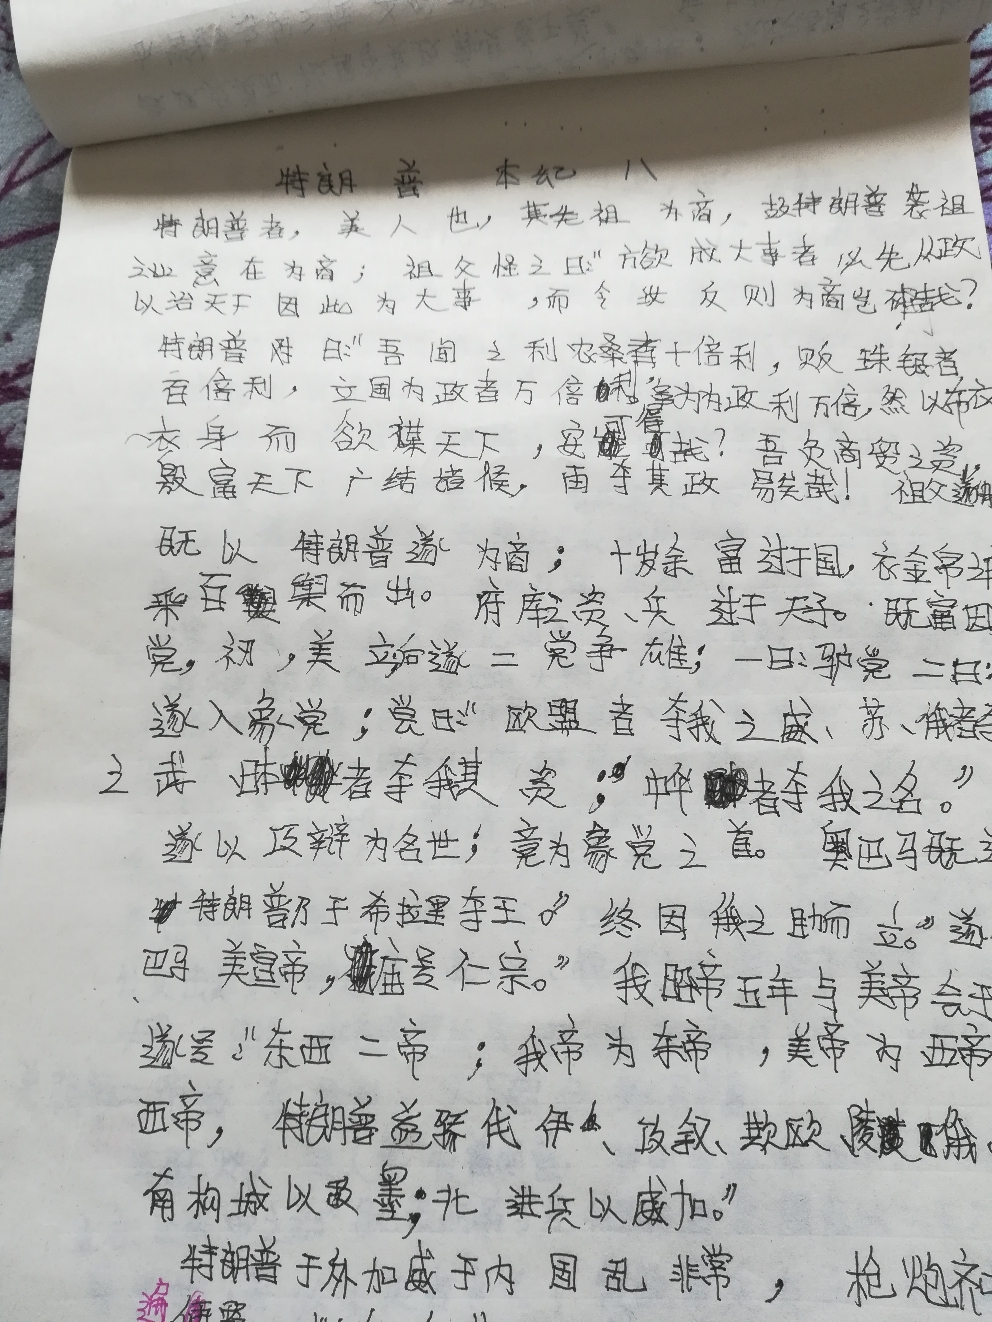 特朗普 本纪 八
特朗普者，美人也，其先祖为商，故特朗普袭祖
之业意在为商；祖父怪之曰：“方欲放大事者以先从政
以治天下因此为大事，而令汝反则为商岂哉？
特朗普对曰：“吾闻之利农桑者十倍利，贩珠钜者
百倍利，立国为政者万倍利，为政利万倍，然以布衣
衣身而欲谋天下，安可得哉？吾负商贸之资，
殷富天下广结诸候，南李其政易矣哉！祖父遂
既以特朗普遂为商；十岁余富过于国，衣金帛
乘百舆而出。府库之资、兵过于天子。既富因
党，初，美立后遂二党争雄；一曰：驴党二曰：
遂入象党；尝曰：“欧盟者李我之威、苏、俄者
之武 日本者李我其资；中华者李我之名。”
遂以及辩为名世；竟为象党之首。奥巴马既
特朗普乃于希拉里李王。”终因俄之助而立。”遂
巴马美宣帝，庙号仁宗。”我昭帝五年与美帝会于
遂号：“东西二帝；我帝为东帝，美帝为西帝
西帝，特朗普益骄伐伊、攻叙、欺欧、陵俄
南构城以攻墨；北进兵以威加。”
特朗普于外加威于内国乱非常，枪炮
遍